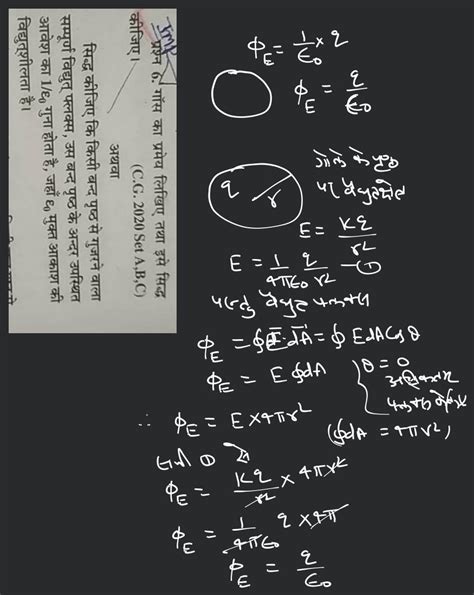 Imp
प्रश्न 6. गॉस का प्रमेय लिखिए तथा इसे सिद्ध
कीजिए।
(C.G. 2020 Set A,B,C)
अथवा
सिद्ध कीजिए कि किसी बन्द पृष्ठ से गुजरने वाला
सम्पूर्ण विद्युत् फ्लक्स, उस बन्द पृष्ठ के अन्दर उपस्थित
आवेश का 1/ε₀ गुना होता है, जहाँ ε₀ मुक्त आकाश की
विद्युतशीलता है।
ϕ_E = 1/ε₀ × q
ϕ_E = q/ε₀
गोले के पृष्ठ
पर वैद्युत क्षेत्र
q r
E = Kq/r²
E = 1/4πε₀ q/r² —①
परन्तु वैद्युत फ्लक्स
ϕ_E = ∮E⃗·dA⃗ = ∮EdA Cos θ
ϕ_E = E∮dA
θ = 0
अधिकतम
∴ ϕ_E = E × 4πr²
(∮dA = 4πr²)
समी ① से
ϕ_E = Kq/r² × 4πr²
ϕ_E = 1/4πε₀ q × 4π
ϕ_E = q/ε₀